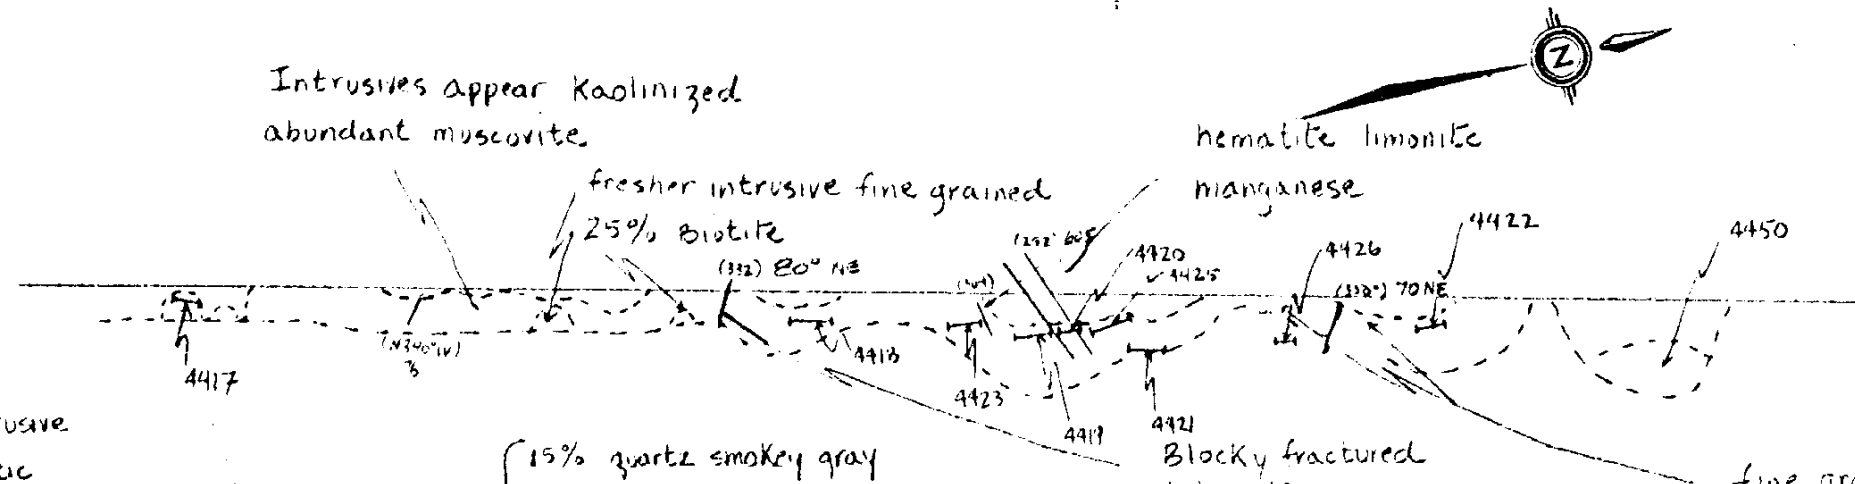 Z
Intrusives appear Kaolinized
abundant muscovite
hematite limonite
manganese
fresher intrusive fine grained
25% Biotite
(332) 80° NE
4420
4425
4426
4422
4450
(332°) 70 NE
4417
4418
4423
4419
4421
15% quartz smokey gray
Blocky fractured
fine